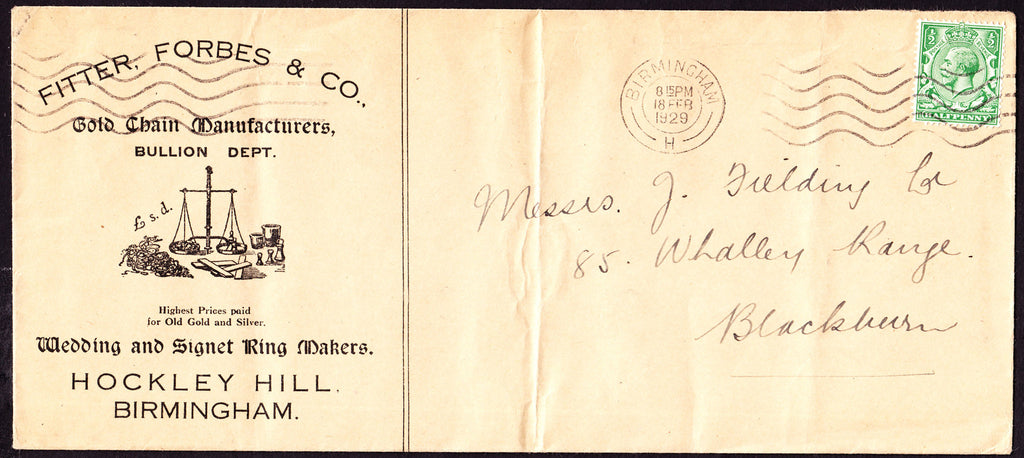 FITTER, FORBES & CO.,
Gold Chain Manufacturers,
BULLION DEPT.
£ s. d.
Highest Prices paid
for Old Gold and Silver.
Wedding and Signet Ring Makers.
HOCKLEY HILL.
BIRMINGHAM.
BIRMINGHAM
8 15 PM
18 FEB
1929
H
½ ½
HALFPENNY
Messrs. J. Fielding Ld
85. Whalley Range.
Blackburn